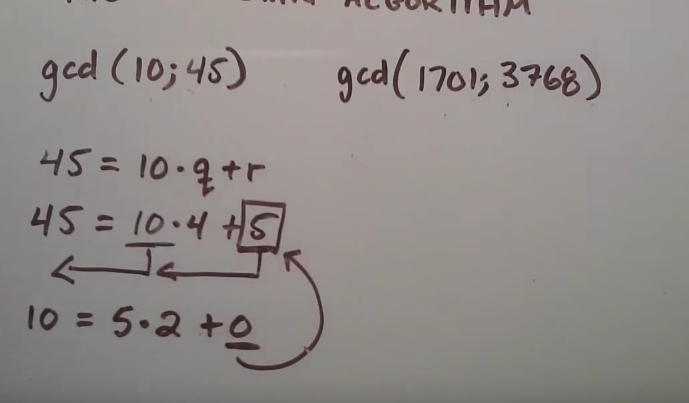 ALGORITHM
gcd (10; 45) gcd(1701; 3768)
45 = 10 · q + r
45 = 10 · 4 + 5
10 = 5 · 2 + 0